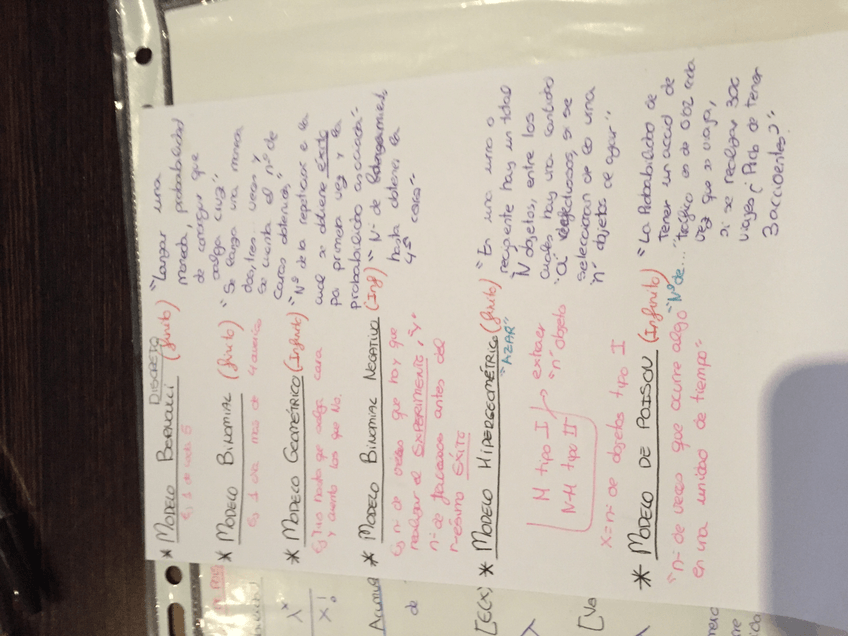 DISCRETO
* MODELO BERNOULLI (finito) "Lanzar una
moneda, probabilidad
de conseguir que
salga cruz"
Ej 1 de cada 5
* MODELO BINOMIAL (finito) "Se lanza una moneda
dos, tres... veces y
se cuenta el nº de
caras obtenidas"
Ej 1 día más de 4 averías
* MODELO GEOMÉTRICO (Infinito) "Nº de la repetición en la
cual se obtiene éxito
por primera vez y la
probabilidad asociada"
Ej tiro hasta que salga cara
y cuento los que no.
* MODELO BINOMIAL NEGATIVO (Inf) "Nº de lanzamientos
hasta obtener la
4ª cara"
Es nº de veces que hay que
realizar el EXPERIMENTO, "y"
nº de fracasos antes del
r-ésimo ÉXITO
* MODELO HIPERGEOMÉTRICO (finito) "En una urna o
"AZAR"
recipiente hay un total
N objetos, entre los
cuales hay una cantidad
"a" defectuosos, si se
seleccionan de la urna
"n" objetos al azar"
M tipo I
N-M tipo II
extraer
"n" objeto
X = nº de objetos tipo I
* MODELO DE POISON (Infinito) "La Probabilidad de
tener un accid. de
tráfico es de 0.02 cada
vez que se viaja,
si se realizan 300
viajes ¿Prob de tener
3 accidentes?"
"Nº de...
"nº de veces que ocurre algo
en una unidad de tiempo"
λˣ
X!
Acumul
de
[E(X)
λ
[Va